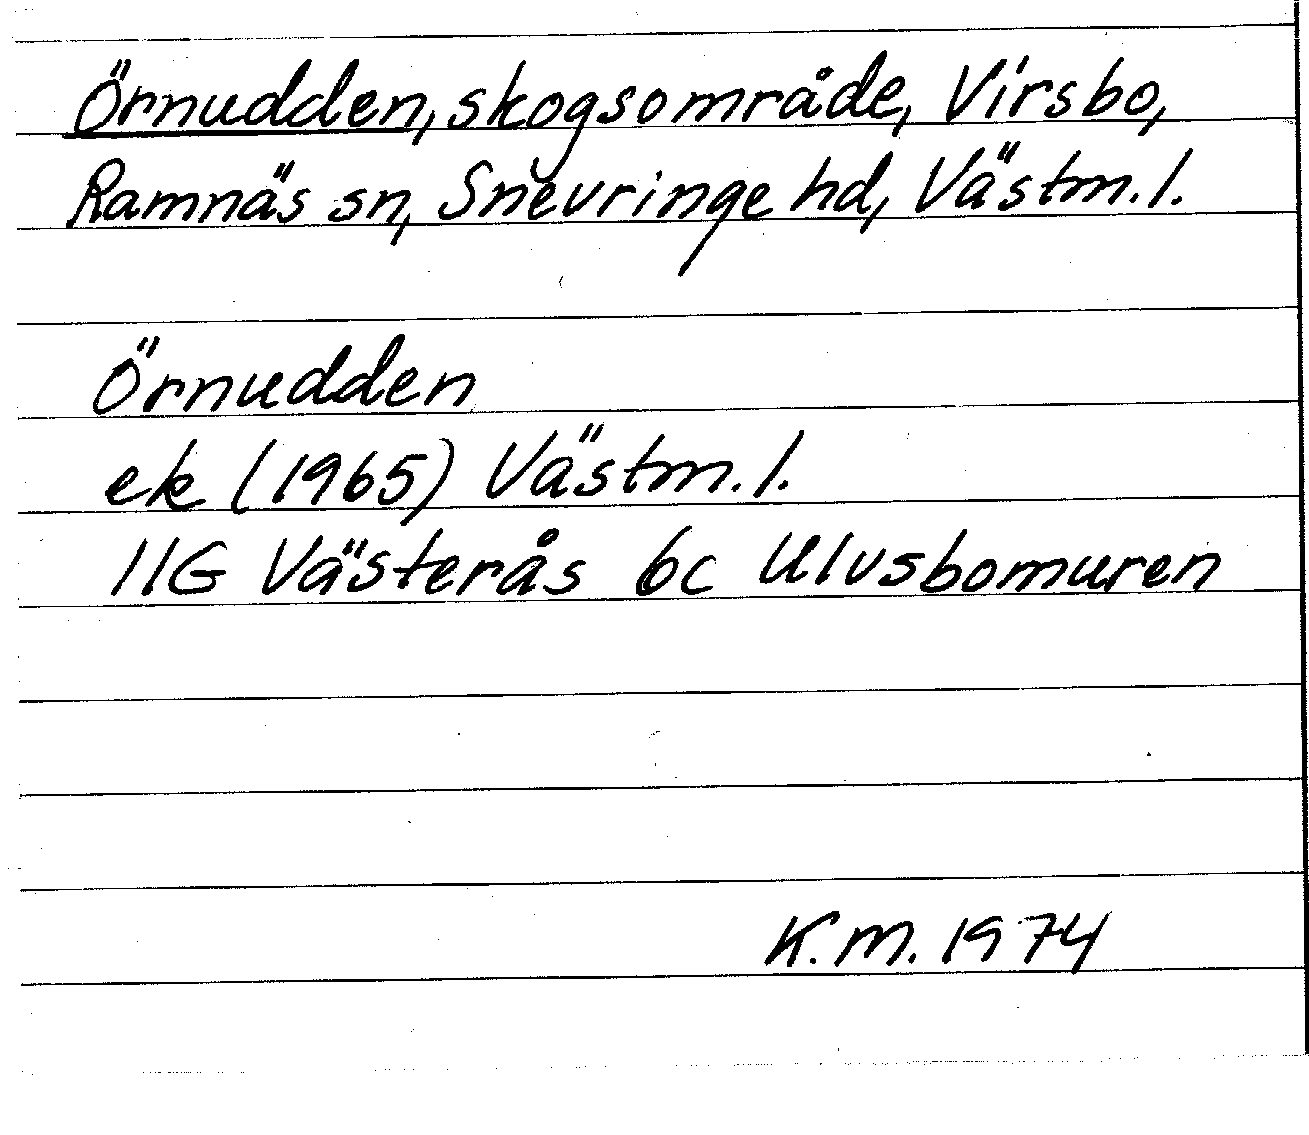 Örnudden, skogsområde, Virsbo,
Ramnäs sn, Snevringe hd, Västm. l.
Örnudden
ek (1965) Västm. l.
11G Västerås 6c Ulvsbomuren
K.M. 1974